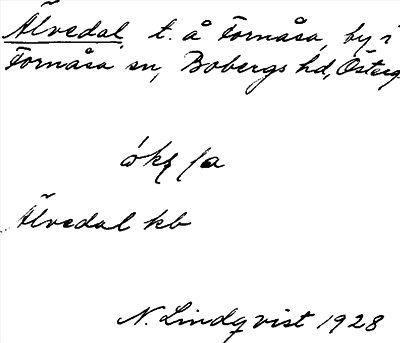 Älvedal, t. å Fornåsa, by i
Fornåsa sn, Bobergs hd, Österg
Älvedal kb
N. Lindqvist 1928